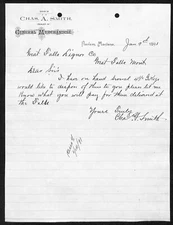 Office of
Chas. A. Smith,
Dealer in
General Merchandise
Jan 8th 1891
Great Falls Liquor Co
Great Falls Mont.
Dear Sir
I have on hand several
would like to dispose of them to you please let me
know what you will pay for them delivered at
the Falls
Yours Truly
Chas. A. Smith